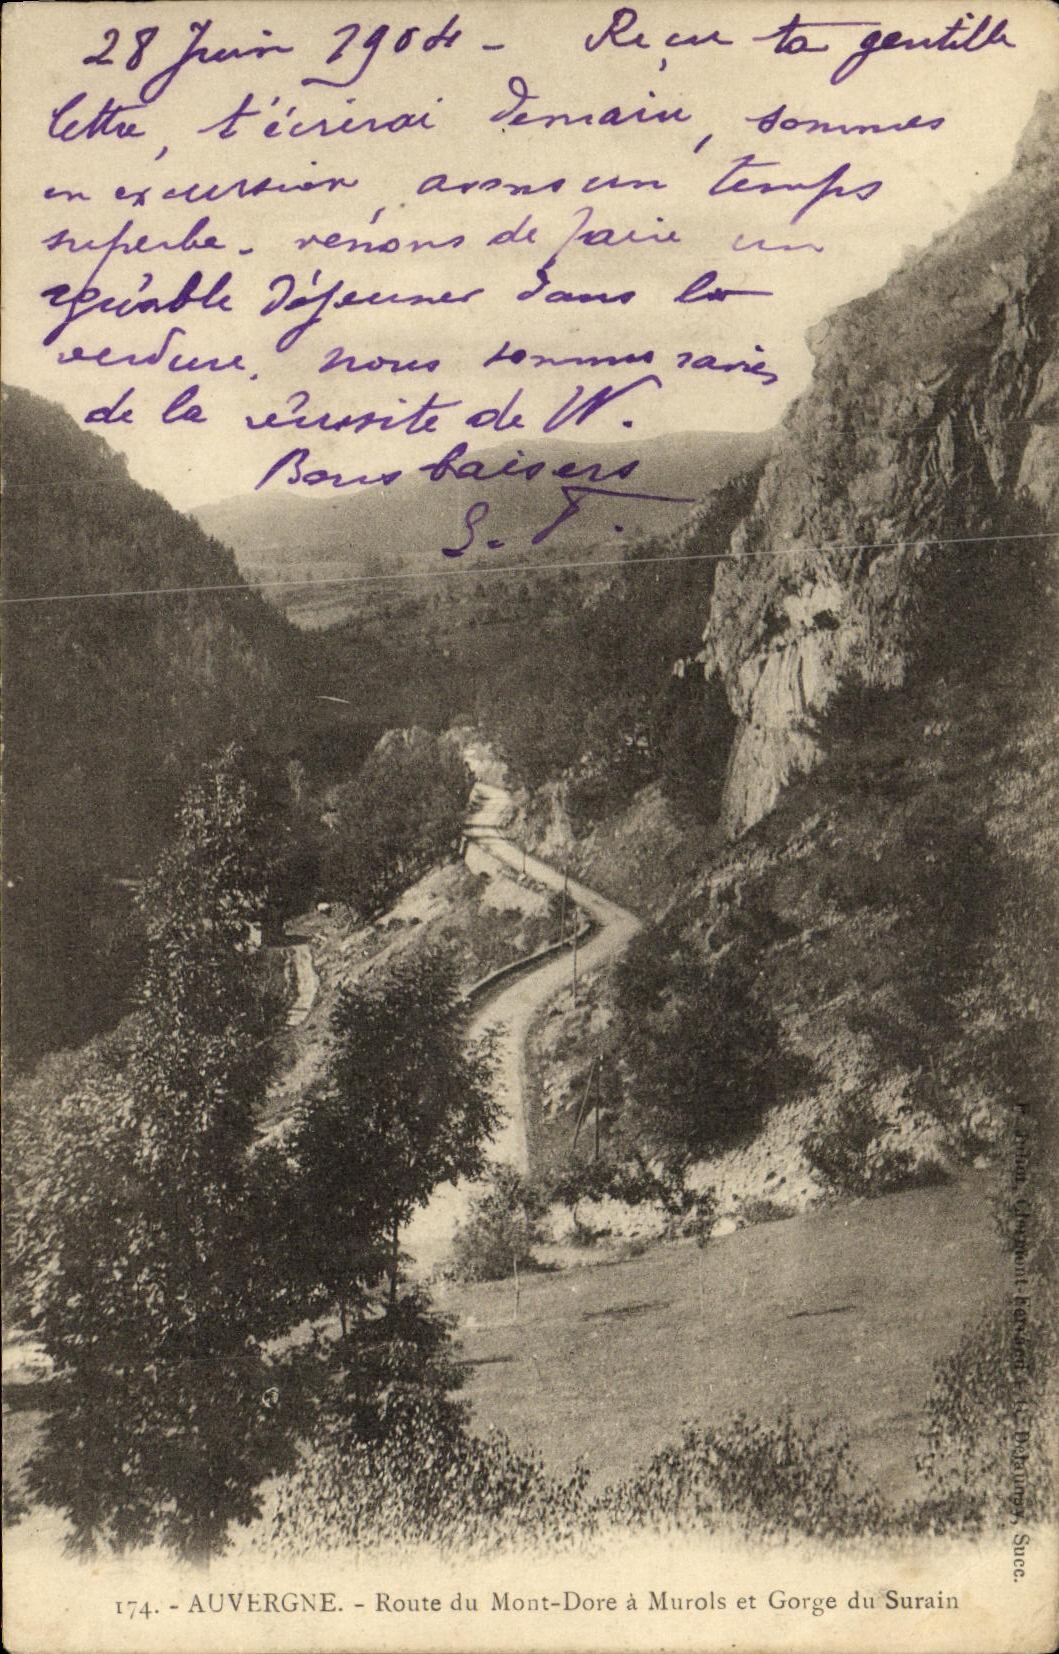 28 Juin 1904 - Reçu ta gentille
lettre, t'écrirai demain, sommes
en excursion, avons un temps
superbe - venons de faire un
agréable déjeuner dans la
verdure, nous sommes ravies
de la réussite de W.
Bons baisers
S. T.
174. - AUVERGNE. - Route du Mont-Dore à Murols et Gorge du Surain
Clermont-Ferrand - G. Delaunay, Succ.